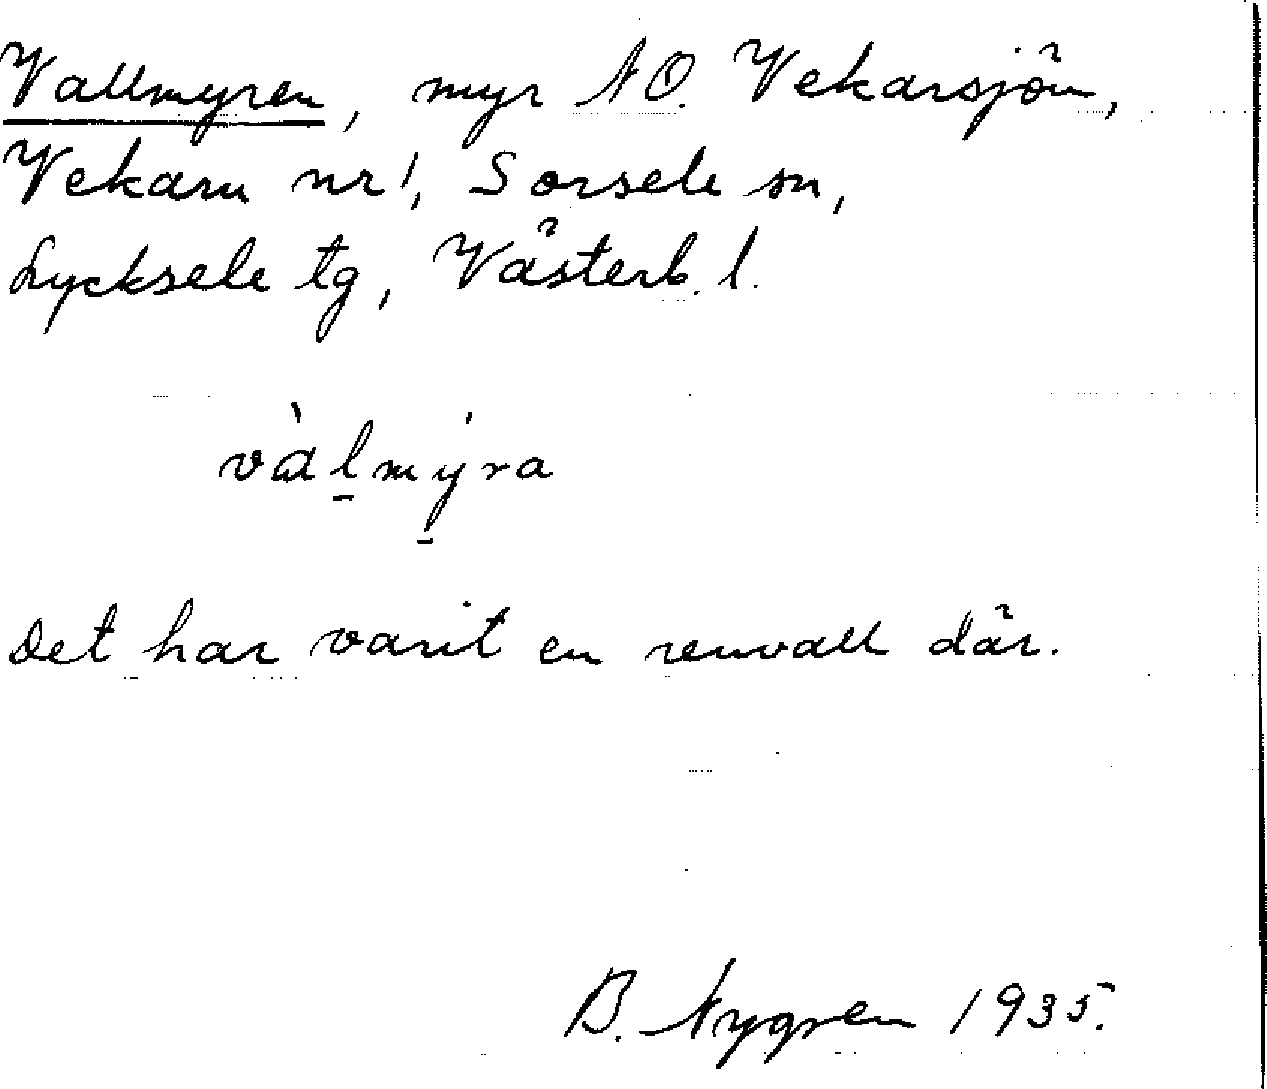 Vallmyren, myr NO. Vekarsjön,
Vekarn nr 1, Sorsele sn,
Lycksele tg, Västerb. l.
vàl̠mý̠ra
Det har varit en renvall där.
B. Nygren 1935.